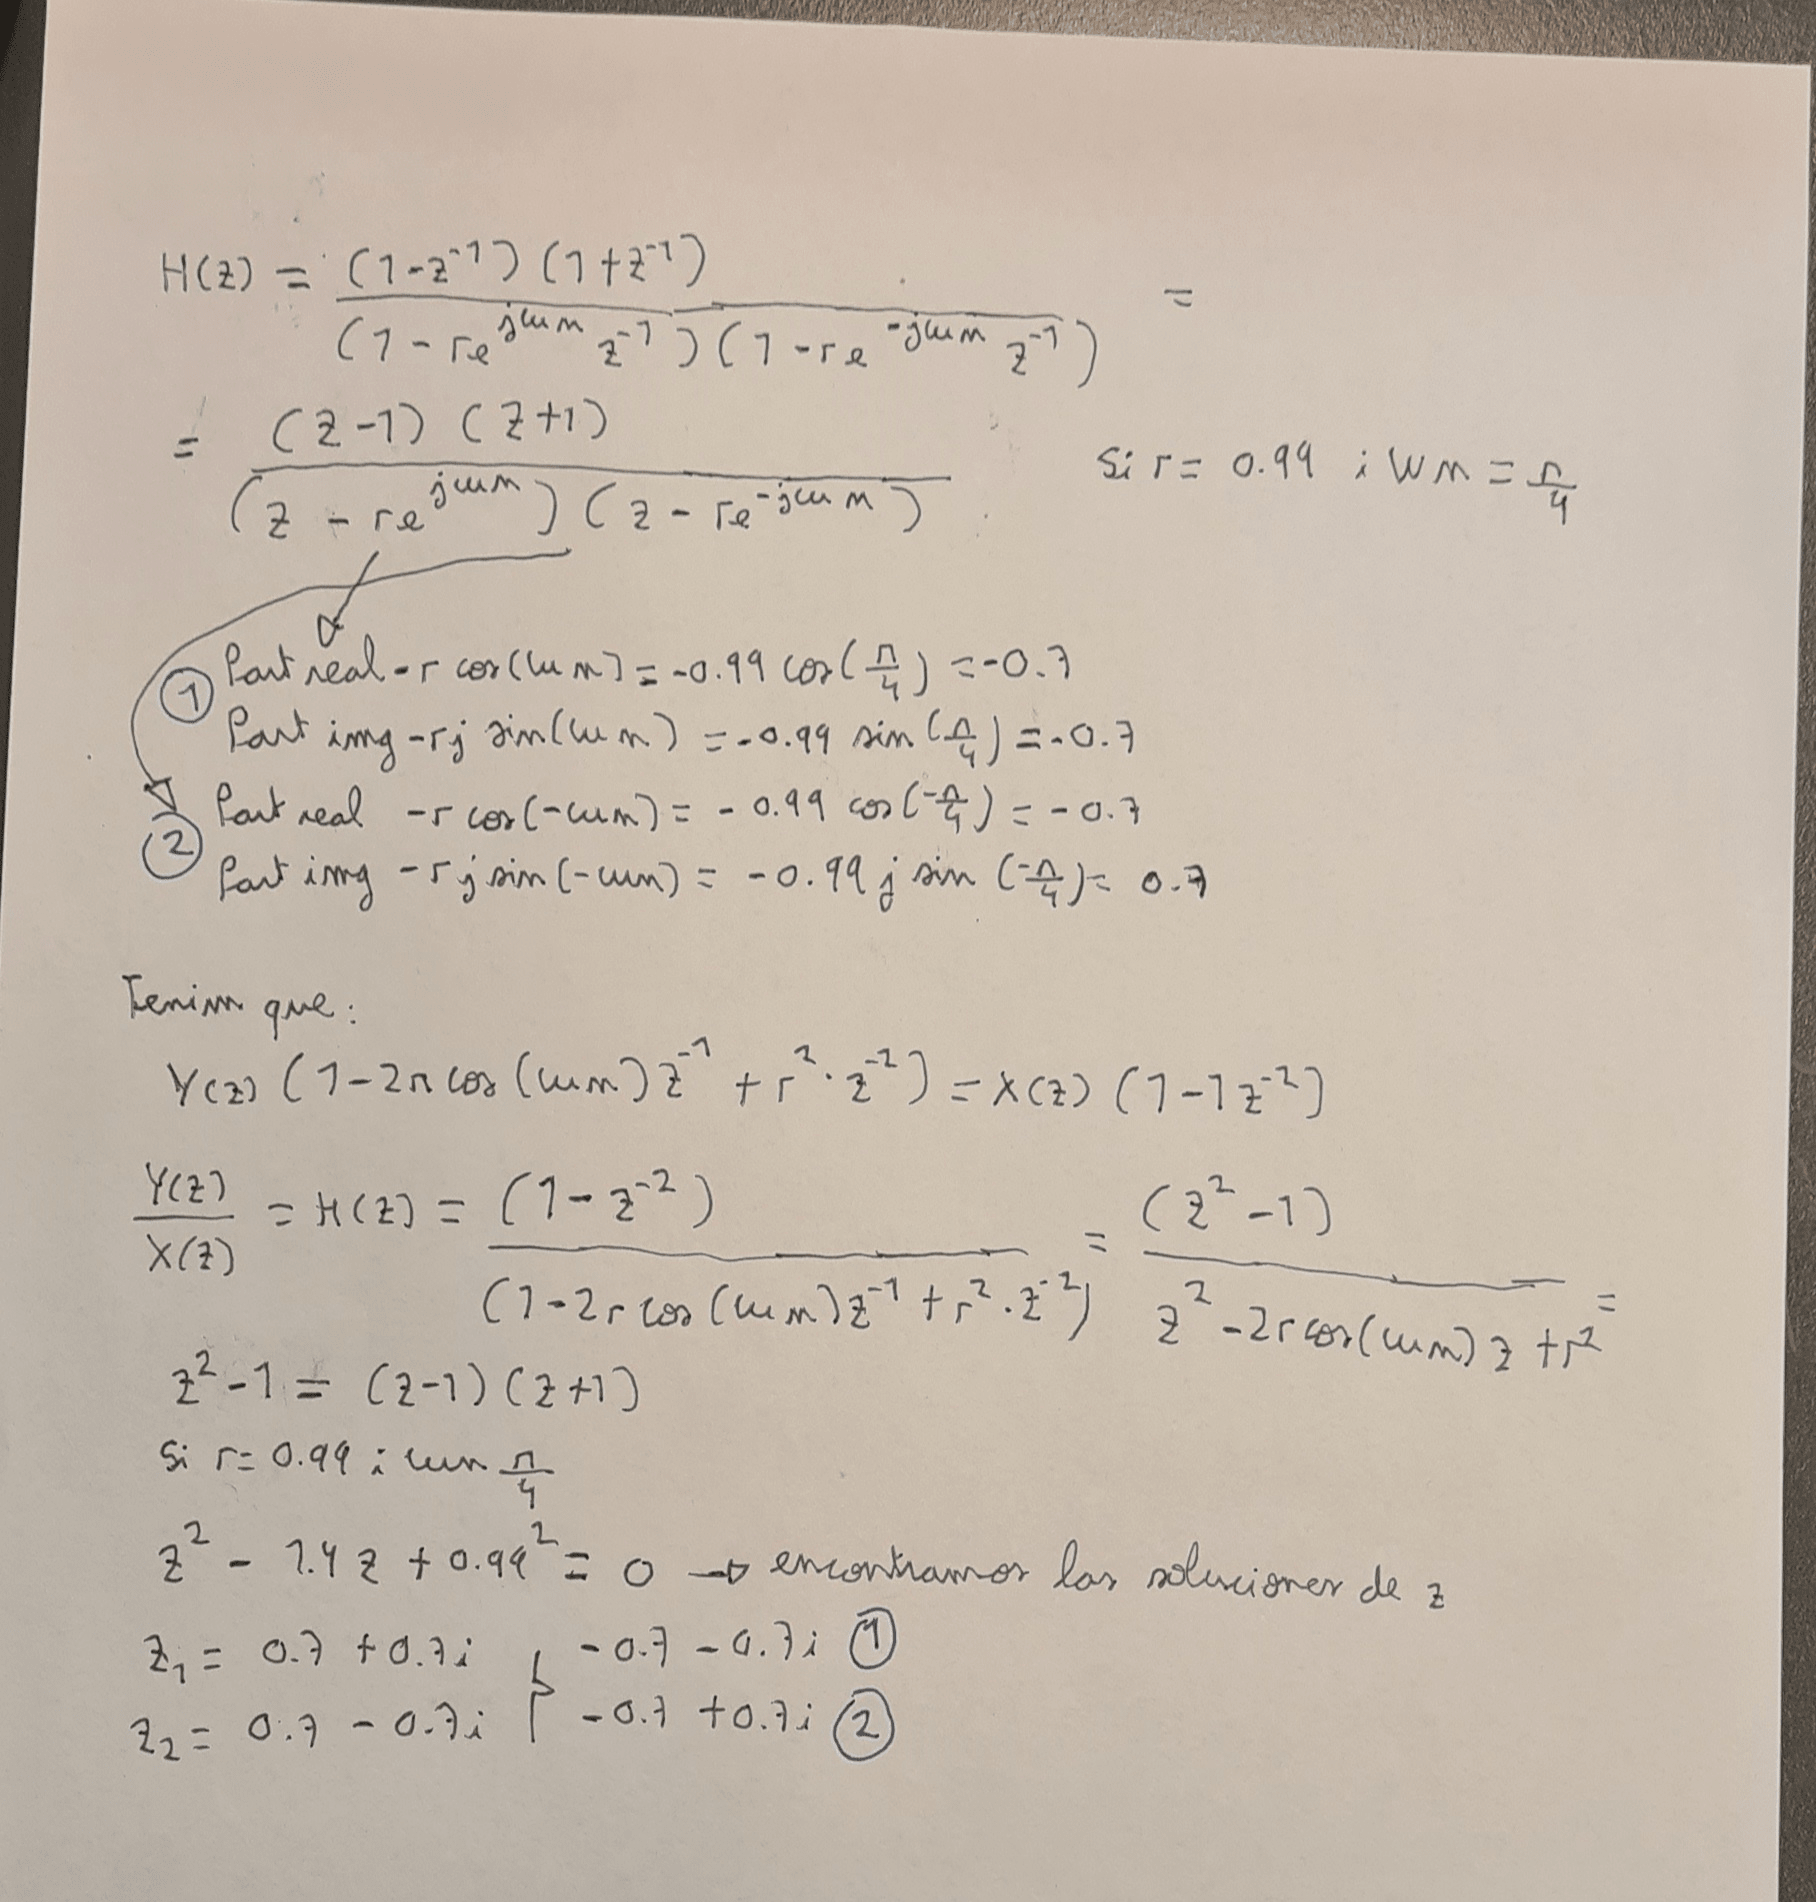 H(z) = (1-z⁻¹) (1+z⁻¹) / (1-re^{jωm} z⁻¹) (1-re^{-jωm} z⁻¹) =
= (z-1) (z+1) / (z - re^{jωm}) (z - re^{-jωm})
Si r= 0.99 i ωm = π/4
① Part real -r cos(ωm) = -0.99 cos(π/4) = -0.7
Part img -rj sin(ωm) = -0.99 sin(π/4) = -0.7
② Part real -r cos(-ωm) = -0.99 cos(-π/4) = -0.7
Part img -rj sin(-ωm) = -0.99 j sin(-π/4) = 0.7
Tenim que:
Y(z) (1-2r cos(ωm) z⁻¹ + r²·z⁻²) = X(z) (1-1z⁻²)
Y(z)/X(z) = H(z) = (1-z⁻²) / (1-2r cos(ωm) z⁻¹ + r²·z⁻²) = (z²-1) / z²-2r cos(ωm) z + r² =
z²-1 = (z-1) (z+1)
Si r= 0.99 i ωm π/4
z² - 1.4z + 0.99² = 0 → encontramos las soluciones de z
z₁ = 0.7 + 0.7i } -0.7 - 0.7i ①
z₂ = 0.7 - 0.7i } -0.7 + 0.7i ②